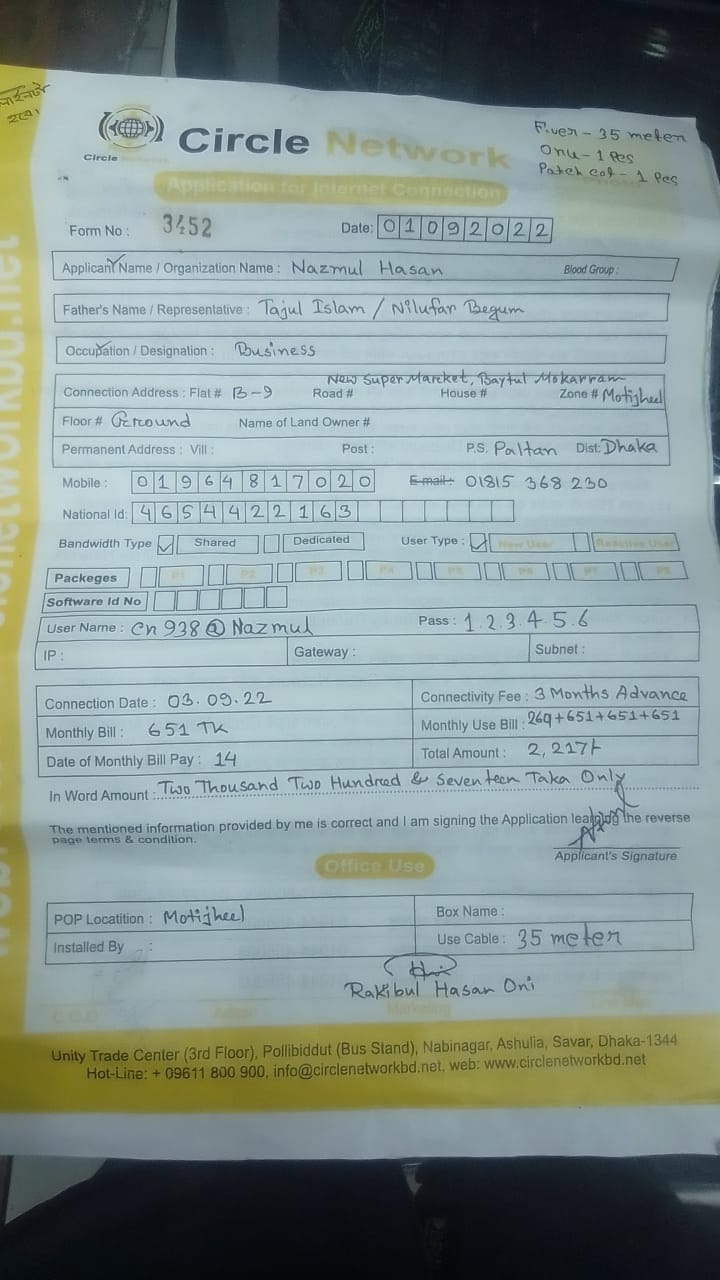 লাইনটা
হবে।
Fiver - 35 meter
Onu - 1 Pcs
Patch cot - 1 Pcs
Circle
Circle Network
Application for Internet Connection
Form No : 3452 Date: 01092022
Applicant Name / Organization Name : Nazmul Hasan Blood Group :
Father's Name / Representative : Tajul Islam / Nilufar Begum
Occupation / Designation : Business
New Super Market, Baytul Mokarram
Connection Address : Flat # B-9 Road # House # Zone # Motijheel
Floor # Ground Name of Land Owner #
Permanent Address : Vill : Post : P.S. Paltan Dist: Dhaka
Mobile : 01964817020 E-mail : 01815 368 230
National Id: 4654422163
Bandwidth Type Shared Dedicated User Type : New User Reactive User
Packeges P1 P2 P3 P4 P5 P6 P7 P8
Software Id No
User Name : Cn938@Nazmul Pass : 1.2.3.4.5.6
IP : Gateway : Subnet :
Connection Date : 03.09.22 Connectivity Fee : 3 Months Advance
Monthly Bill : 651 TK Monthly Use Bill : 269+651+651+651
Date of Monthly Bill Pay : 14 Total Amount : 2,217/-
In Word Amount : Two Thousand Two Hundred & Seventeen Taka Only
The mentioned information provided by me is correct and I am signing the Application the reverse
page terms & condition.
Applicant's Signature
Office Use
POP Locatition : Motijheel Box Name :
Installed By : Use Cable : 35 meter
Rakibul Hasan Oni
C.O.O Admin Marketing
Unity Trade Center (3rd Floor), Pollibiddut (Bus Stand), Nabinagar, Ashulia, Savar, Dhaka-1344
Hot-Line: + 09611 800 900, info@circlenetworkbd.net, web: www.circlenetworkbd.net